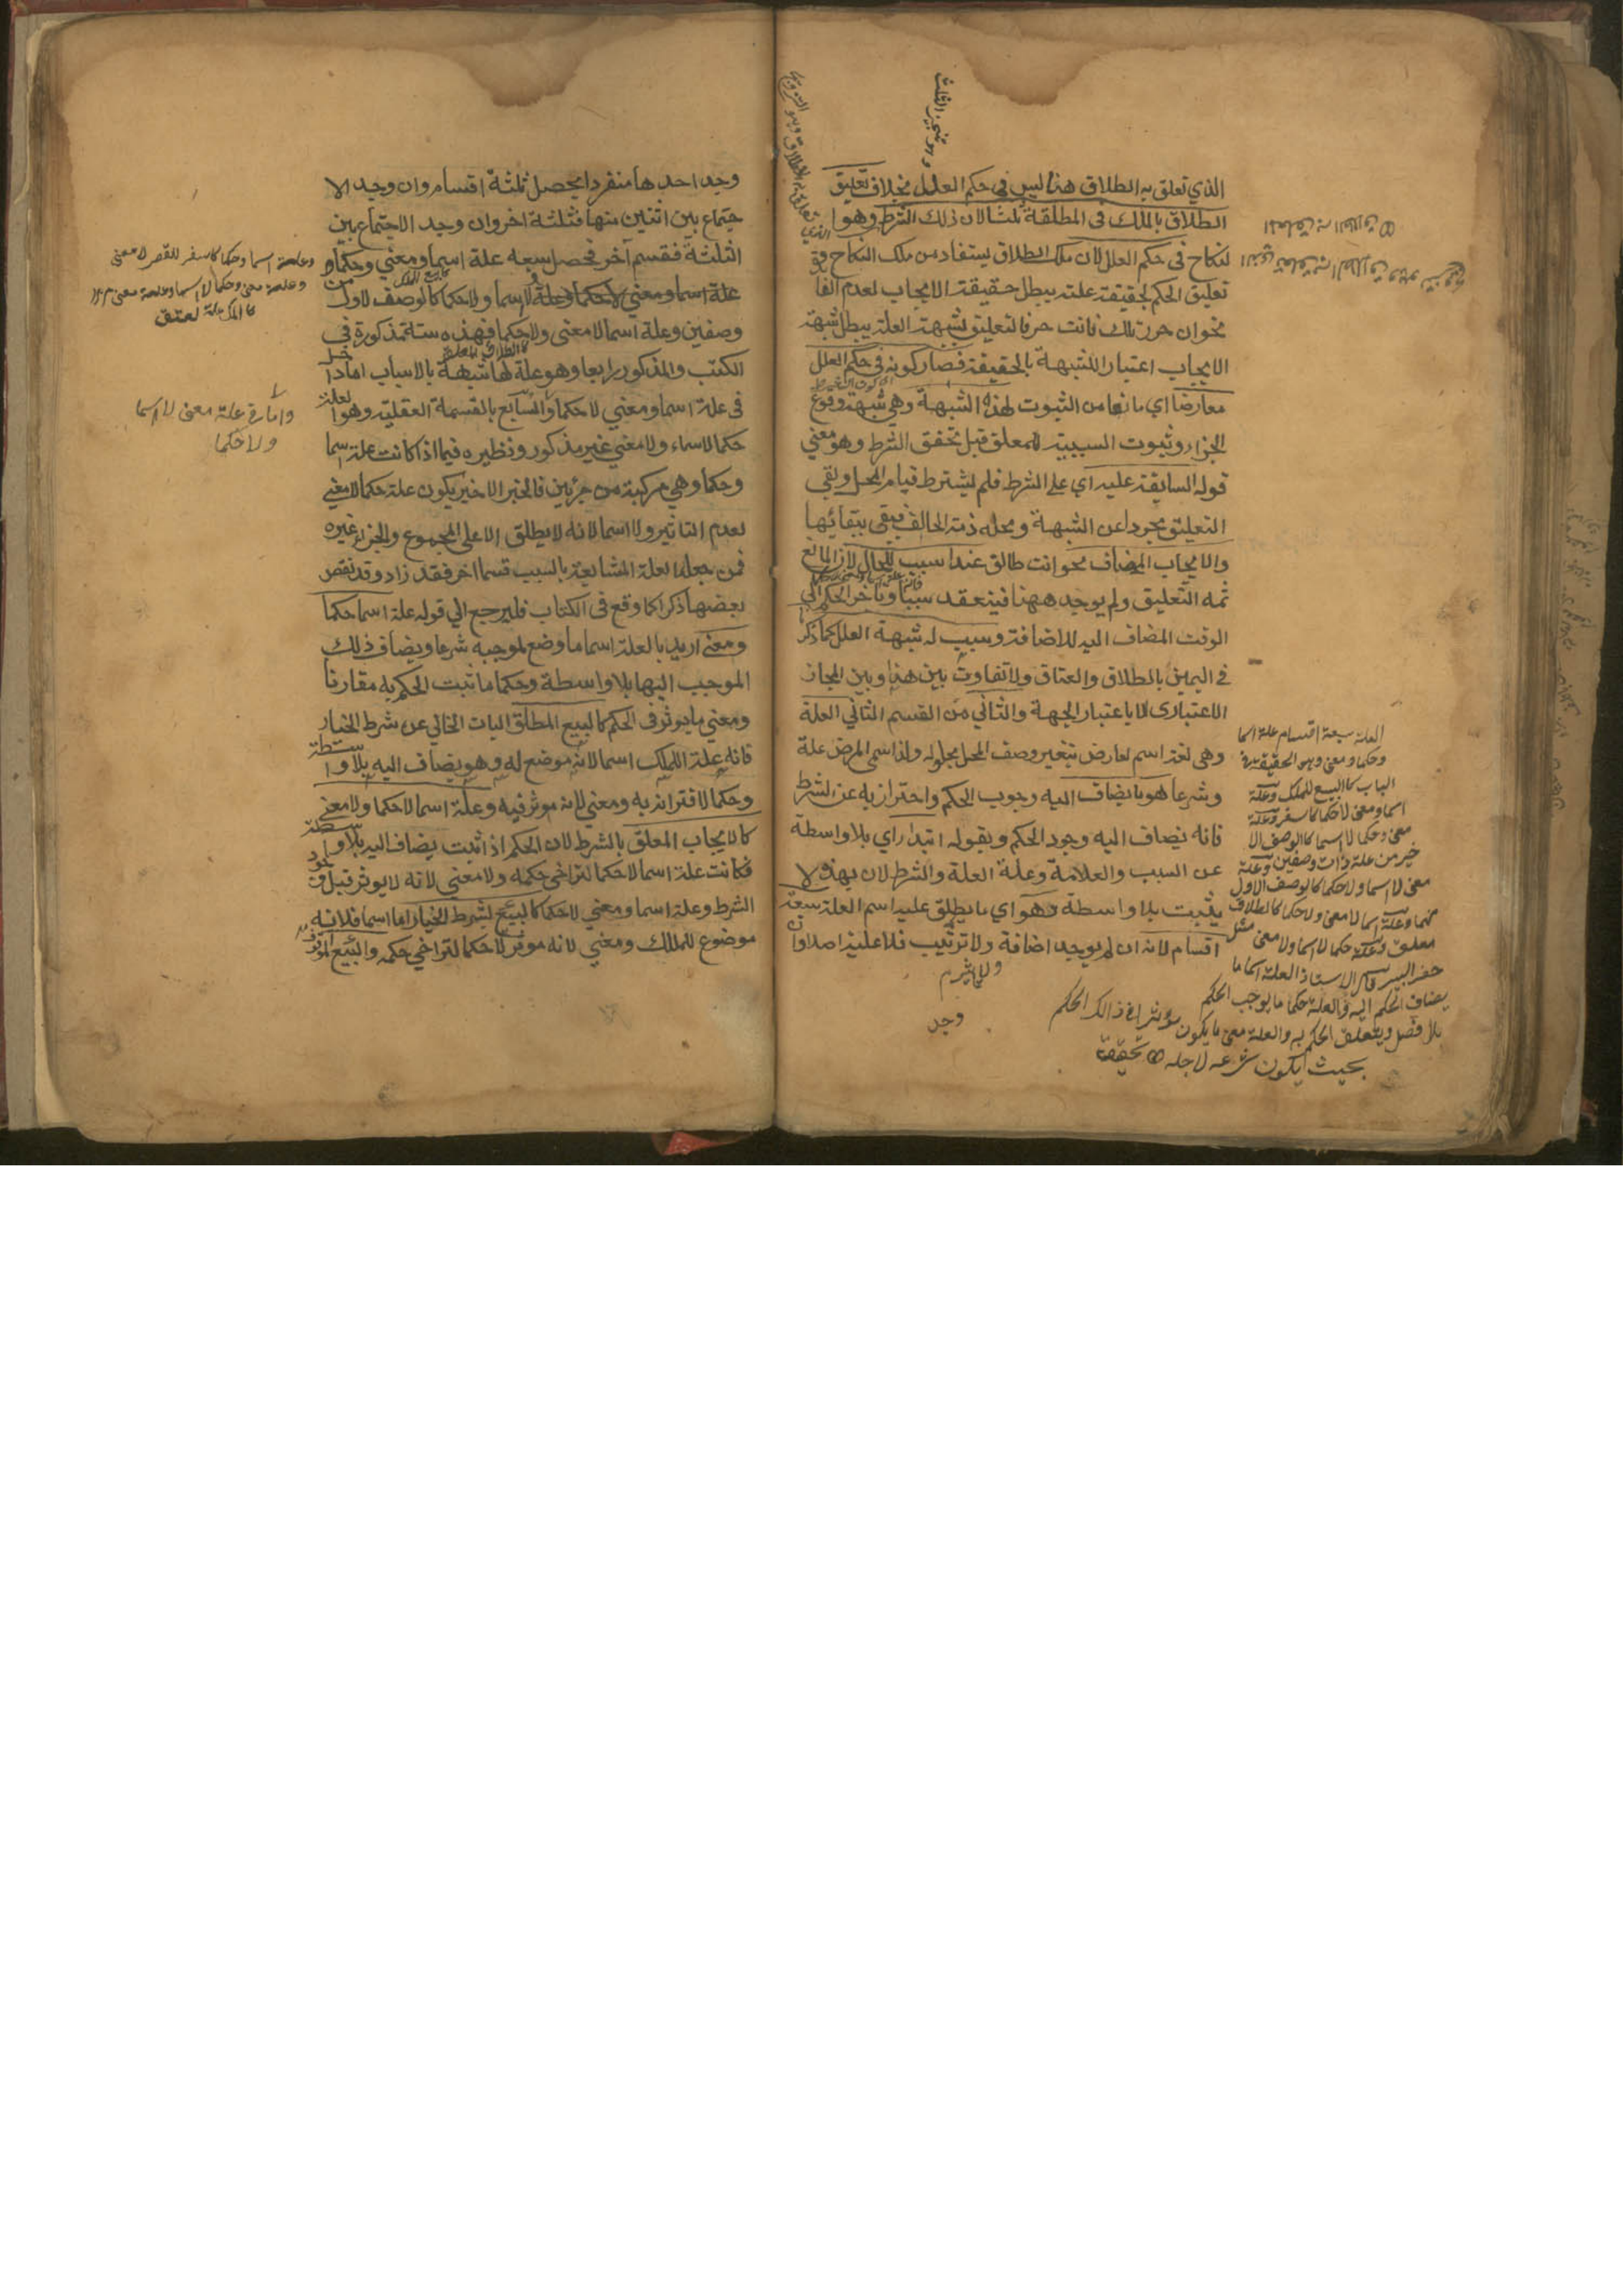 الذي تعلق به الطلاق هذا ليس في حكم العلل بخلاف تعليق
الطلاق بالملك في المطلقة ثلثا لان ذلك الشرط وهوا
لنكاح في حكم العلل لان ملك الطلاق يستفاد من ملك النكاح
تعليق الحكم لحقيقة علته يبطل حقيقة الايجاب لعدم الفا
نحو ان حررتك فانت حر فالتعليق لشبهة العلة يبطل شبهة
الايجاب اعتبارا للشبهة بالحقيقة فصار كونه في حكم العلل
معارضا اي مانعا من الثبوت لهذه الشبهة وهي شبهة وقوع
الجزاء وثبوت السببية للمعلق قبل تحقق الشرط وهو معني
قوله السابقة عليه اي على الشرط فلم يشترط قيام المحل وبقي
التعليق مجردا عن الشبهة ومحله ذمة الحالف فيبقى ببقائها
والايجاب المضاف نحو انت طالق غدا سبب للحال لان المانع
ثمه التعليق ولم يوجد ههنا فينعقد سببا وتاخر الحكم الي
الوقت المضاف اليه للاضافة وسبب له شبهة العلل كما ذكر
في اليمين بالطلاق والعتاق ولا تفاوت بين هذا وبين المجاز
الاعتباري الا باعتبار الجهة والثاني من القسم الثاني العلة
وهي لغة اسم لعارض يتغير وصف المحل بحلوله ولذا سمي المرض علة
وشرعا هو ما يضاف اليه وجوب الحكم واحترز به عن الشرط
فانه يضاف اليه وجود الحكم وبقوله ابتداء اي بلا واسطة
عن السبب والعلامة وعلة العلة والشرط لان بهذه لا
يثبت بلا واسطة وهو اي ما يطلق عليه اسم العلة سبعة
اقسام لانه ان لم يوجد اضافة ولا ترتيب فلا علية اصلا وان
وجد
العلة سبعة اقسام علة اسما
وحكما ومعنى وهو الحقيقة في
الباب كالبيع للملك وعلة
اسما ومعنى لا حكما كالسفر وعلة
معنى وحكما لا اسما كالوصف الا
خير من علة ذات وصفين وعلة
معنى لا اسما ولا حكما كالوصف الاول
منهما وعلة اسما لا معنى ولا حكما كالطلاق
معلق وعلة حكما لا اسما ولا معنى مثل
حفر البير قال الاستاذ العلة اسما ما
يضاف الحكم اليه والعلة حكما ما يوجب الحكم
بلا فصل ويتعلق الحكم به والعلة معنى ما يكون مؤثرا في ذالك الحكم
بحيث يكون شرعه لاجله
وجد احدها منفردا يحصل ثلثة اقسام وان وجد الا
جتماع بين اثنين منها فثلثة اخر وان وجد الاجتماع بين
الثلثة فقسم آخر فحصل سبعة علة اسما ومعني وحكما و
علة اسما ومعني لا حكما وعلة لا اسما ولا حكما كالوصف الاول من
وصفين وعلة اسما لا معنى ولا حكما فهذه ستة مذكورة في
الكتب والمذكور رابعا وهو علة لها شبهة بالاسباب اما داخل
في علة اسما ومعني لا حكما والسابع بالقسمة العقلية وهو العلة
حكما لا اسما ولا معني غير مذكور ونظيره فيما اذا كانت علة اسما
وحكما وهي مركبة من جزئين فالجزء الاخير يكون علة حكما لا معنى
لعدم التاثير ولا اسما لانه لا يطلق الا على المجموع والجزء غيره
فمن جعل العلة المشابهة بالسبب قسما اخر فقد زاد وقد نقص
بعضها ذكرا كما وقع في الكتاب فليرجع الي قوله علة اسما حكما
ومعنى اريد بالعلة اسما ما وضع لموجبه شرعا ويضاف ذلك
الموجب اليها بلا واسطة وحكما ما ثبت الحكم به مقارنا
ومعني ما يوثر في الحكم كالبيع المطلق البات الخالي عن شرط الخيار
فانه علة الملك اسما لانه موضع له وهو يضاف اليه بلا واسطة
وحكما لاقترانه به ومعني لانه موثر فيه وعلة اسما لا حكما ولا معنى
كالايجاب المعلق بالشرط لان الحكم اذا ثبت يضاف اليه بلا واسطة
فكانت علة اسما لا حكما لتراخي حكمه ولا معني لانه لا يوثر قبل وجود
الشرط وعلة اسما ومعني لا حكما كالبيع لشرط الخيار اما اسما فلانه
موضوع للملك ومعني لانه موثر لا حكما لتراخي حكمه والبيع الموقوف
وعلة اسما وحكما كالسفر للقصر لا معنى
وعلة معنى وحكما لا اسما
لعتق
علة معنى لا اسما
ولا حكما